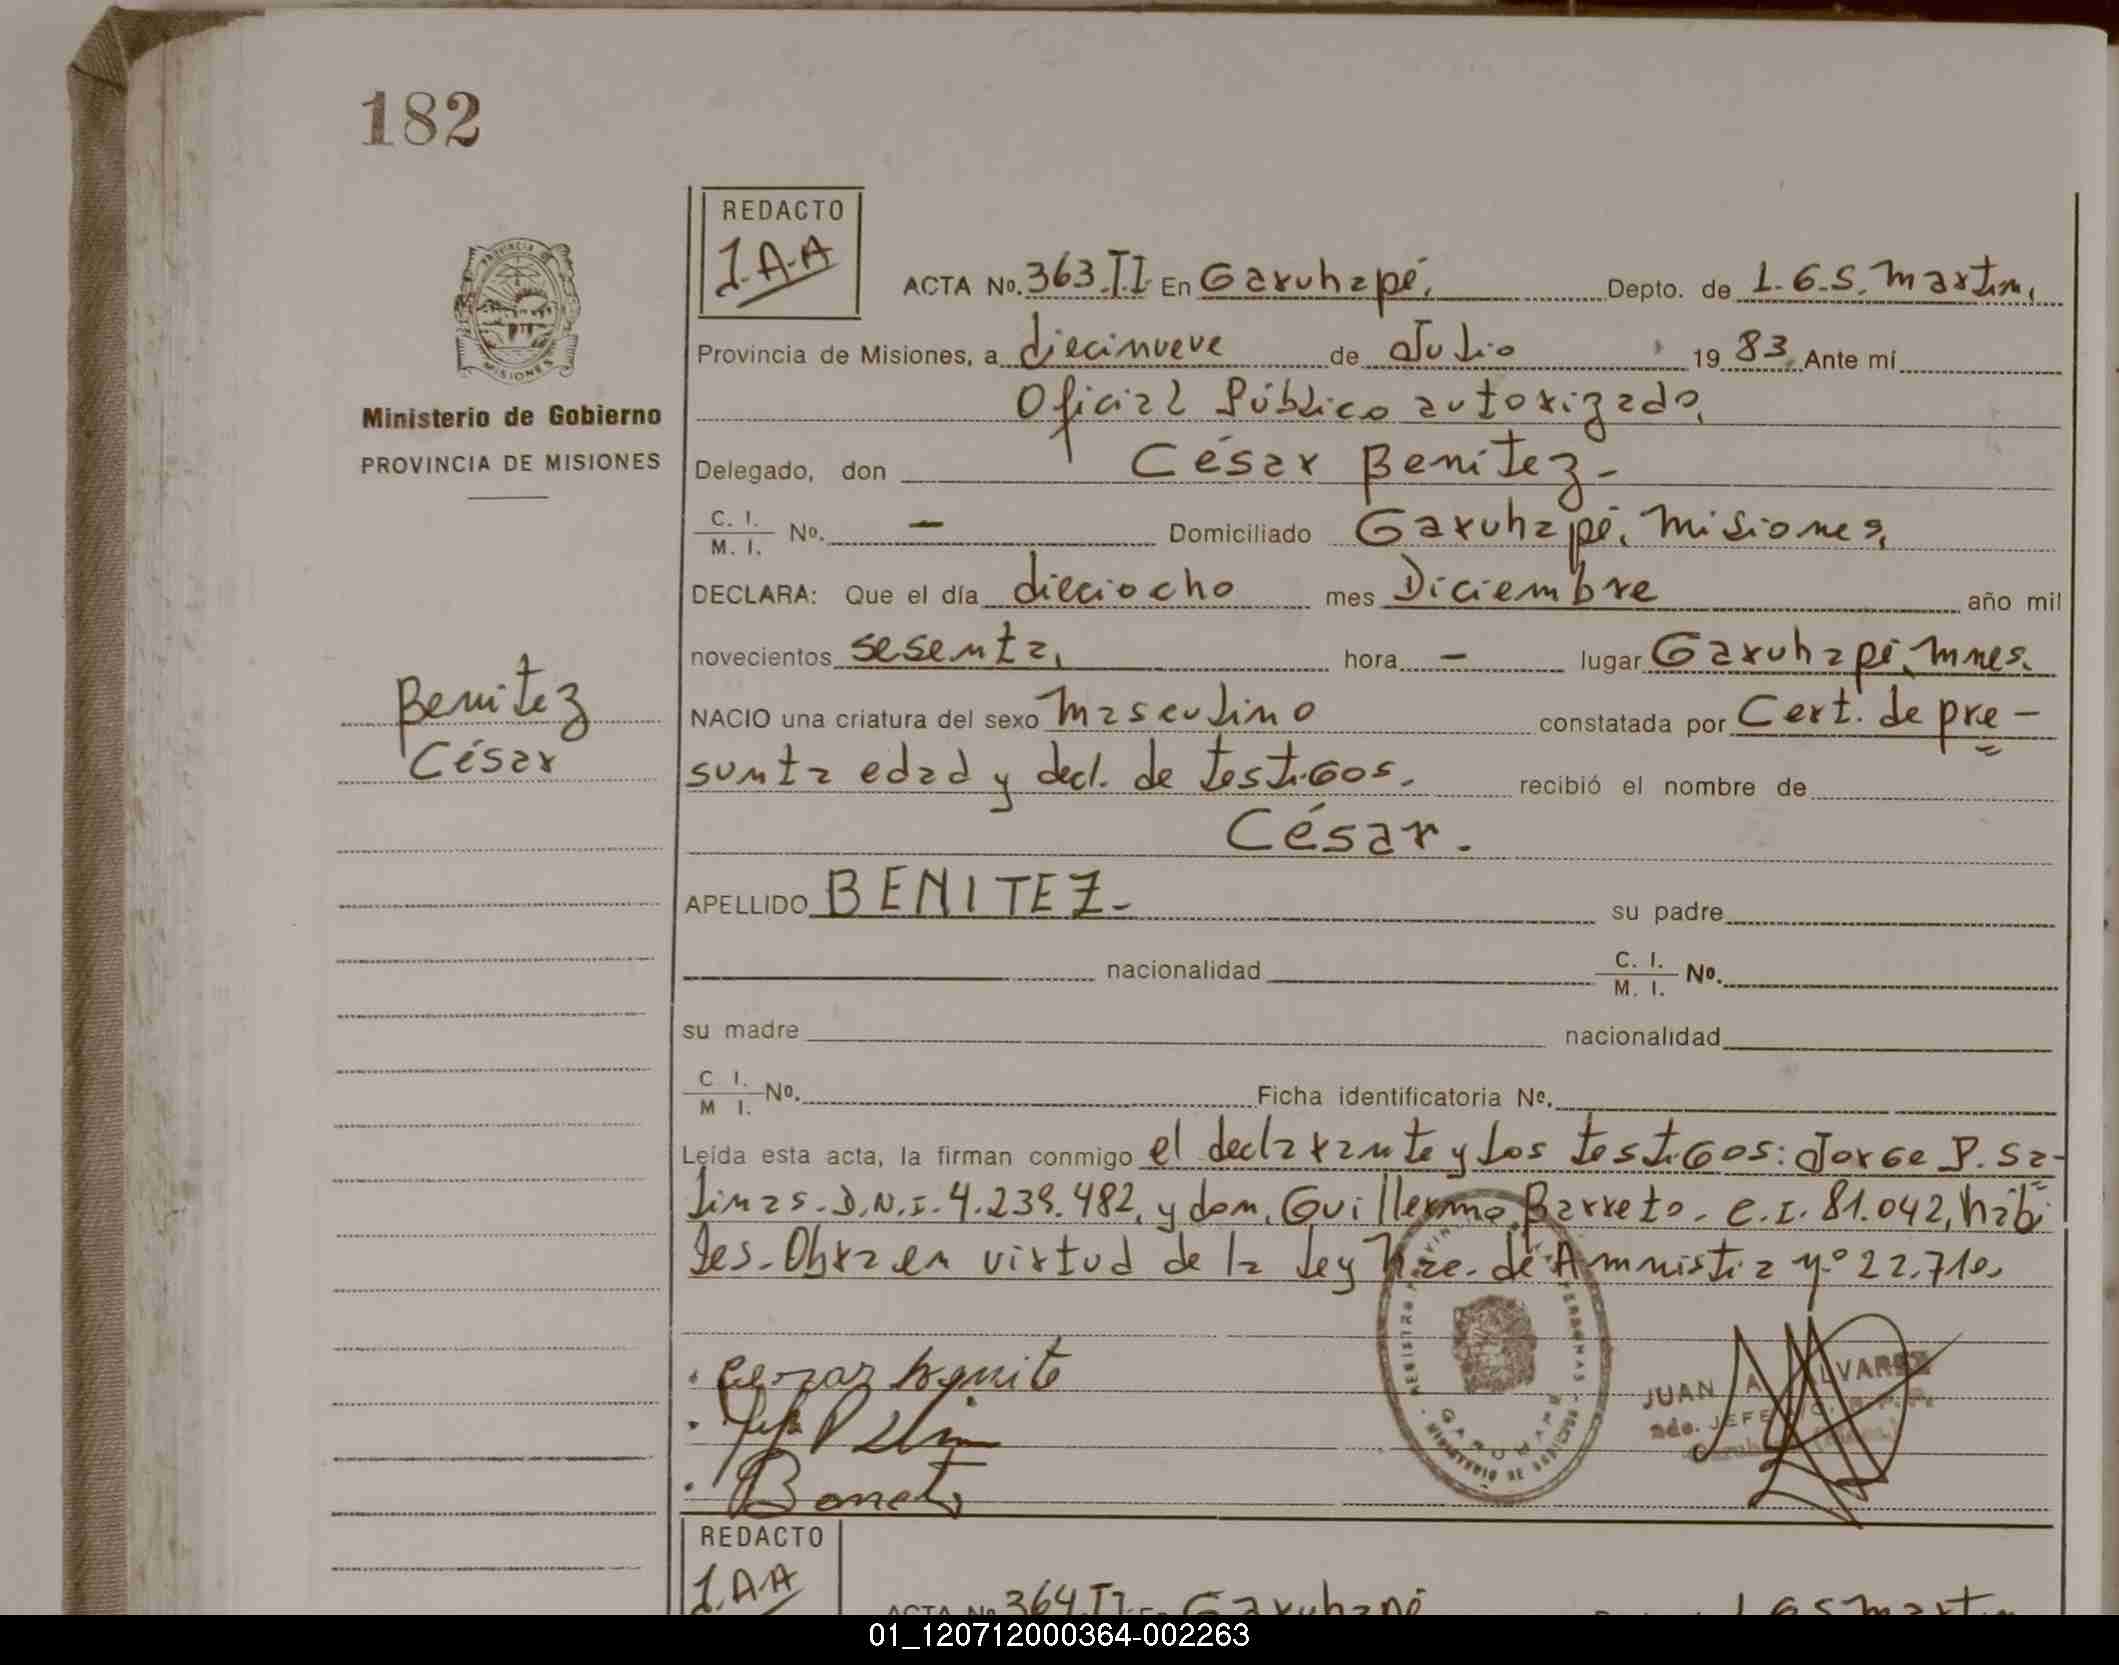 182
REDACTO
J.A.A
ACTA No. 363.II. En Garuhapé, Depto. de L.G.S. Martín,
Provincia de Misiones, a diecinueve de Julio 19 83, Ante mí
Oficial Público autorizado,
Ministerio de Gobierno
PROVINCIA DE MISIONES
Delegado, don César Benitez-
C. I.
M. I. No. - Domiciliado Garuhapé, Misiones,
DECLARA: Que el día dieciocho mes Diciembre año mil
novecientos sesenta, hora - lugar Garuhapé, Mnes.
Benitez
César
NACIO una criatura del sexo Masculino constatada por Cert. de pre-
sunta edad y decl. de testigos. recibió el nombre de
César.
APELLIDO BENITEZ- su padre
nacionalidad C. I.
M. I. No.
su madre nacionalidad
C I.
M I. No. Ficha identificatoria No.
Leída esta acta, la firman conmigo el declarante y los testigos: Jorge P. Sa-
linas. D.N.I. 4.239.482, y don, Guillermo Barreto. C.I. 81.042, hábi
les. Obra en virtud de la Ley Nac. de Amnistia nº 22.710.
Cerzar benite
JUAN A. ALVAREZ
JEFE
MISIONES
GARUHAPE
REDACTO
J.A.A
ACTA No. 364.II. En Garuhapé L G S Martin
01_120712000364-002263